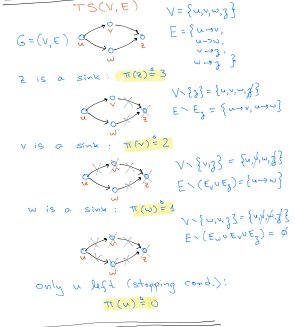 TS(V,E)
V = {u,v,w,z}
G = (V,E)
v
u
z
w
E = {u→v,
u→w,
v→z,
w→z}
z is a sink: π(z) ≜ 3
v
u
z
w
V∖{z} = {u,v,w,z}
E∖E_z = {u→v, u→w}
v is a sink: π(v) ≜ 2
v
u
z
w
V∖{v,z} = {u,v,w,z}
E∖(E_v∪E_z) = {u→w}
w is a sink: π(w) ≜ 1
v
u
z
w
V∖{w,v,z} = {u,v,w,z}
E∖(E_w∪E_v∪E_z) = ∅
only u left (stopping cond.):
π(u) ≜ 0